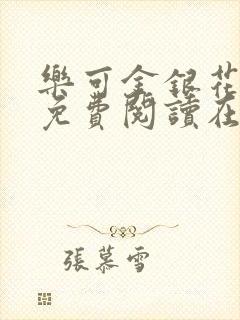 樂可金銀花
免費閱讀在
張慕雪